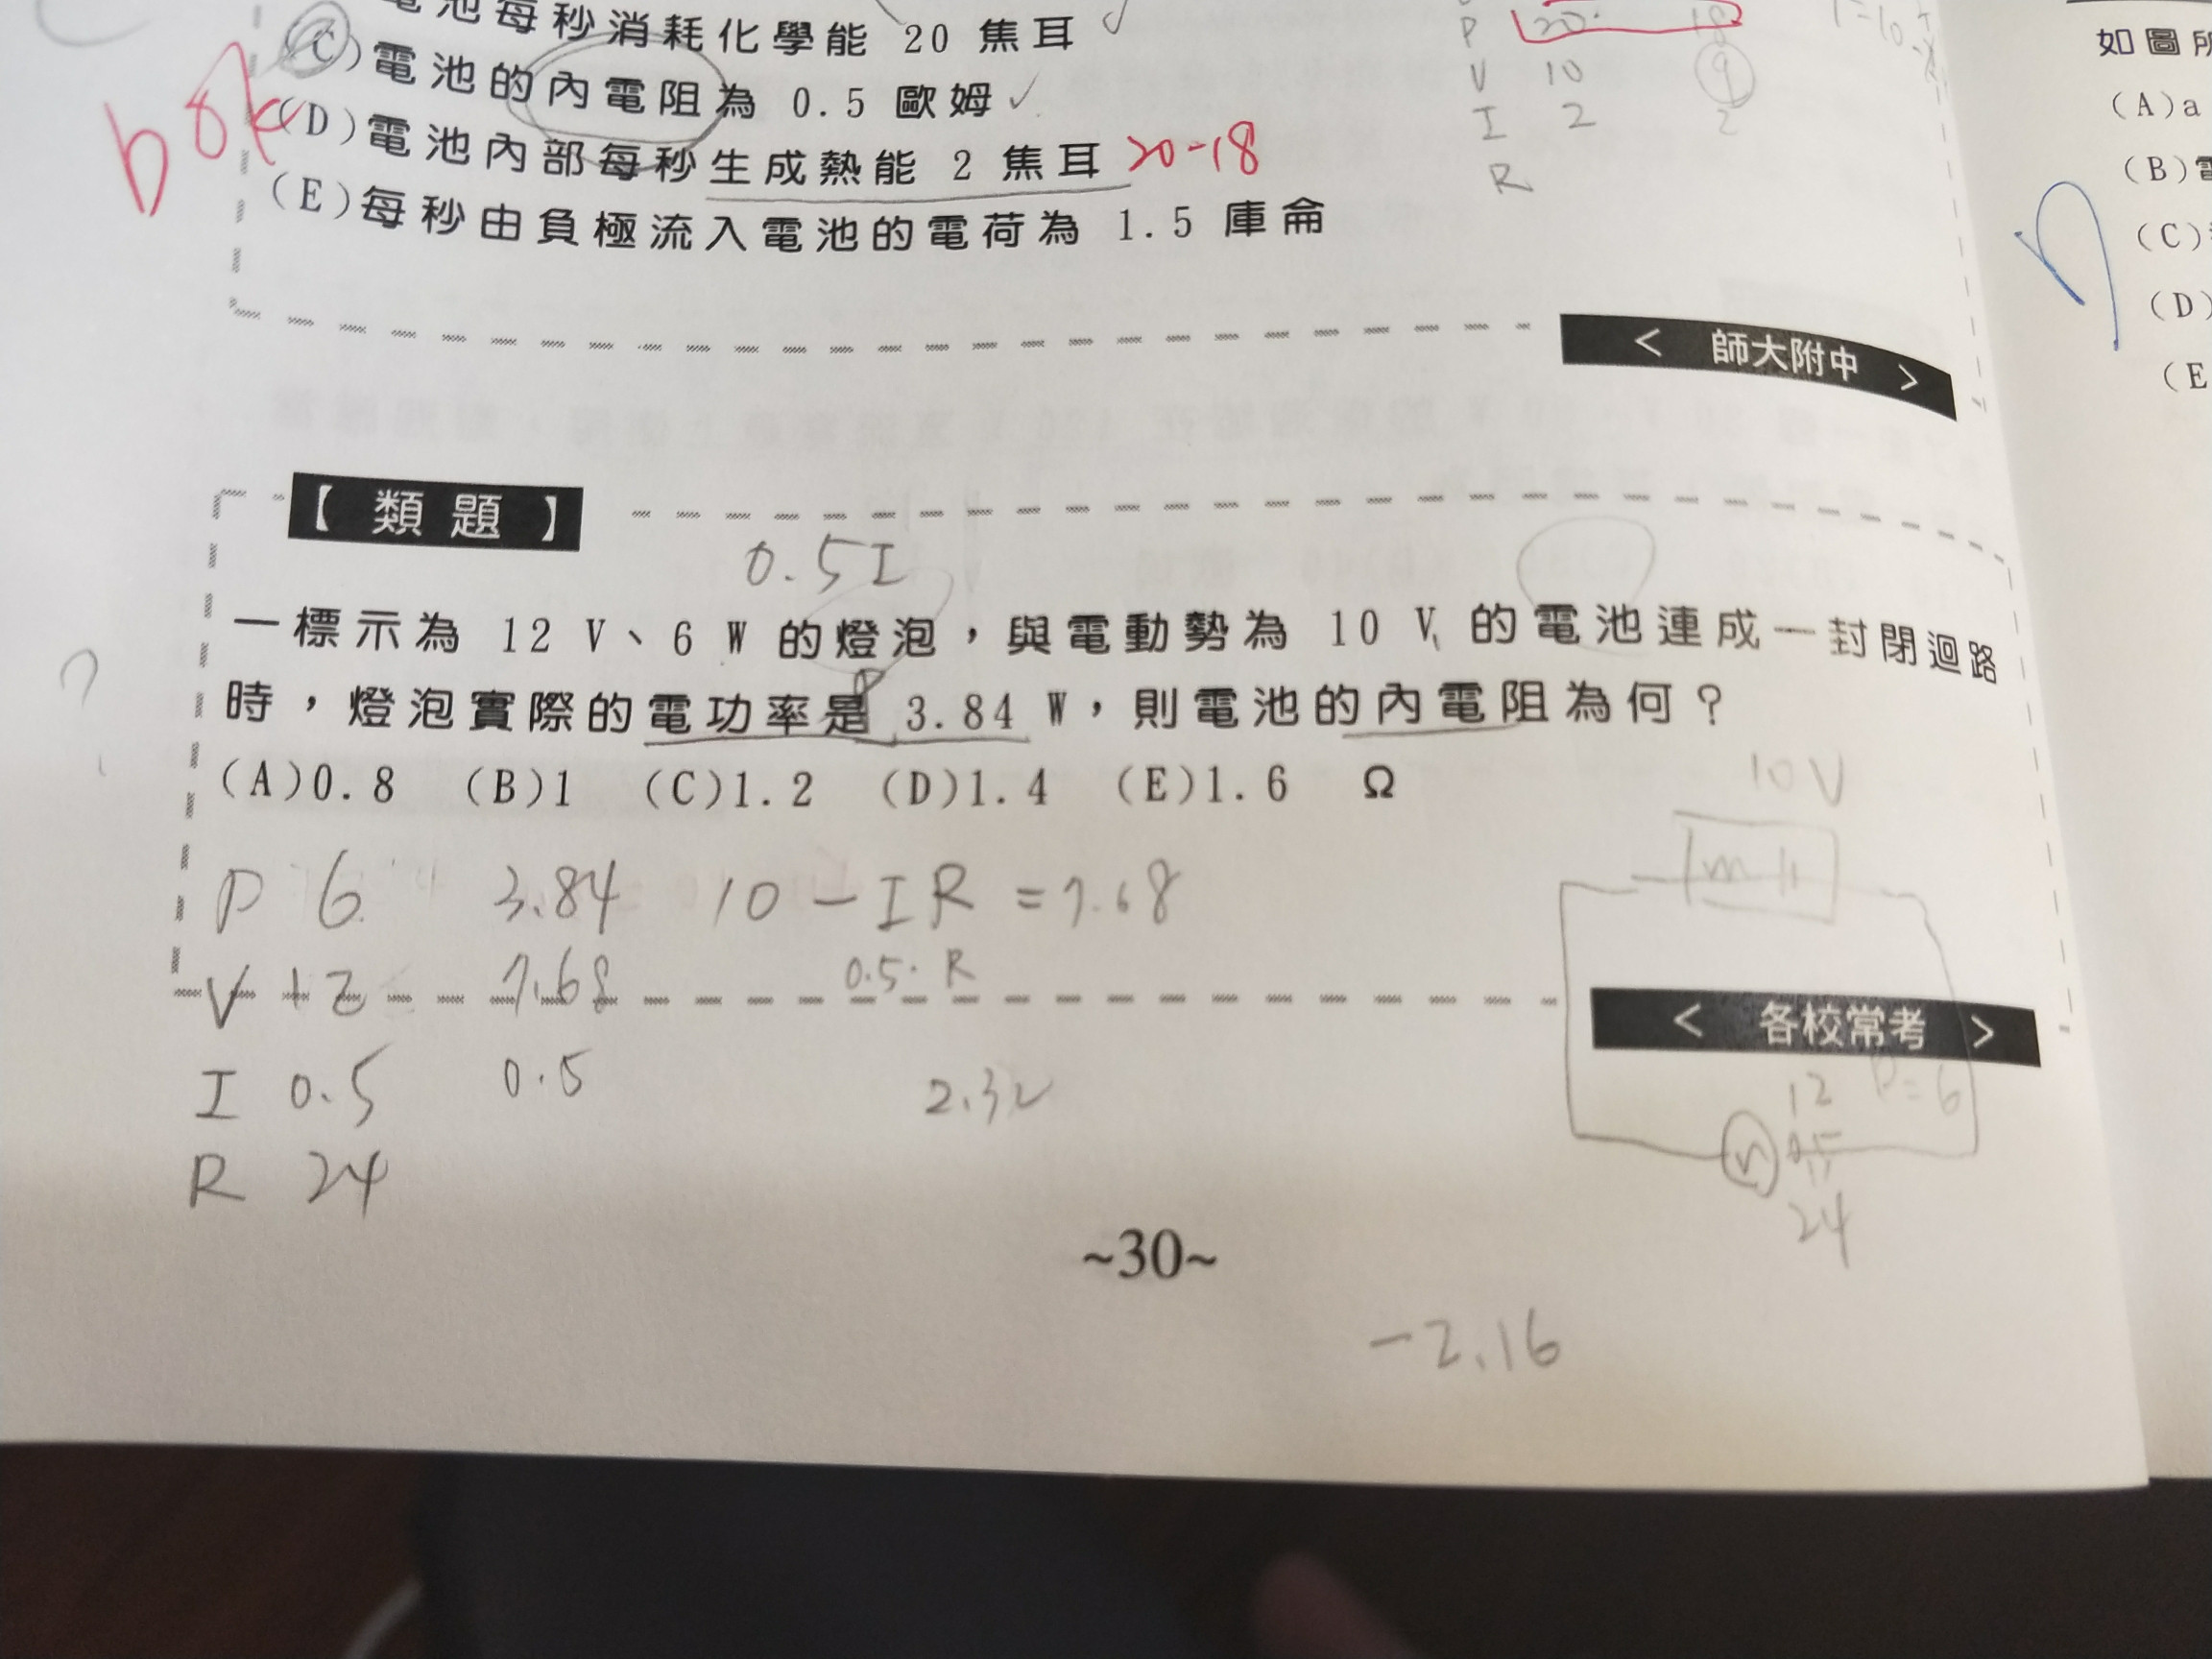 電池每秒消耗化學能 20 焦耳 ✓
(C)電池的內電阻為 0.5 歐姆 ✓
(D)電池內部每秒生成熱能 2 焦耳 20-18
(E)每秒由負極流入電池的電荷為 1.5 庫侖
P 20 18
V 10 9
I 2 2
R
< 師大附中 >
【類題】
0.5I
一標示為 12 V、6 W 的燈泡，與電動勢為 10 V 的電池連成一封閉迴路
時，燈泡實際的電功率是 3.84 W，則電池的內電阻為何？
P
?
(A)0.8 (B)1 (C)1.2 (D)1.4 (E)1.6 Ω
P 6 3.84 10 - IR = 7.68
V 12 7.68 0.5·R
I 0.5 0.5 2.32
R 24
10V
< 各校常考 >
12 P=6
0.5
24
~30~
-2.16
如圖所
(A)a
(B)電
(C)
(D)
(E